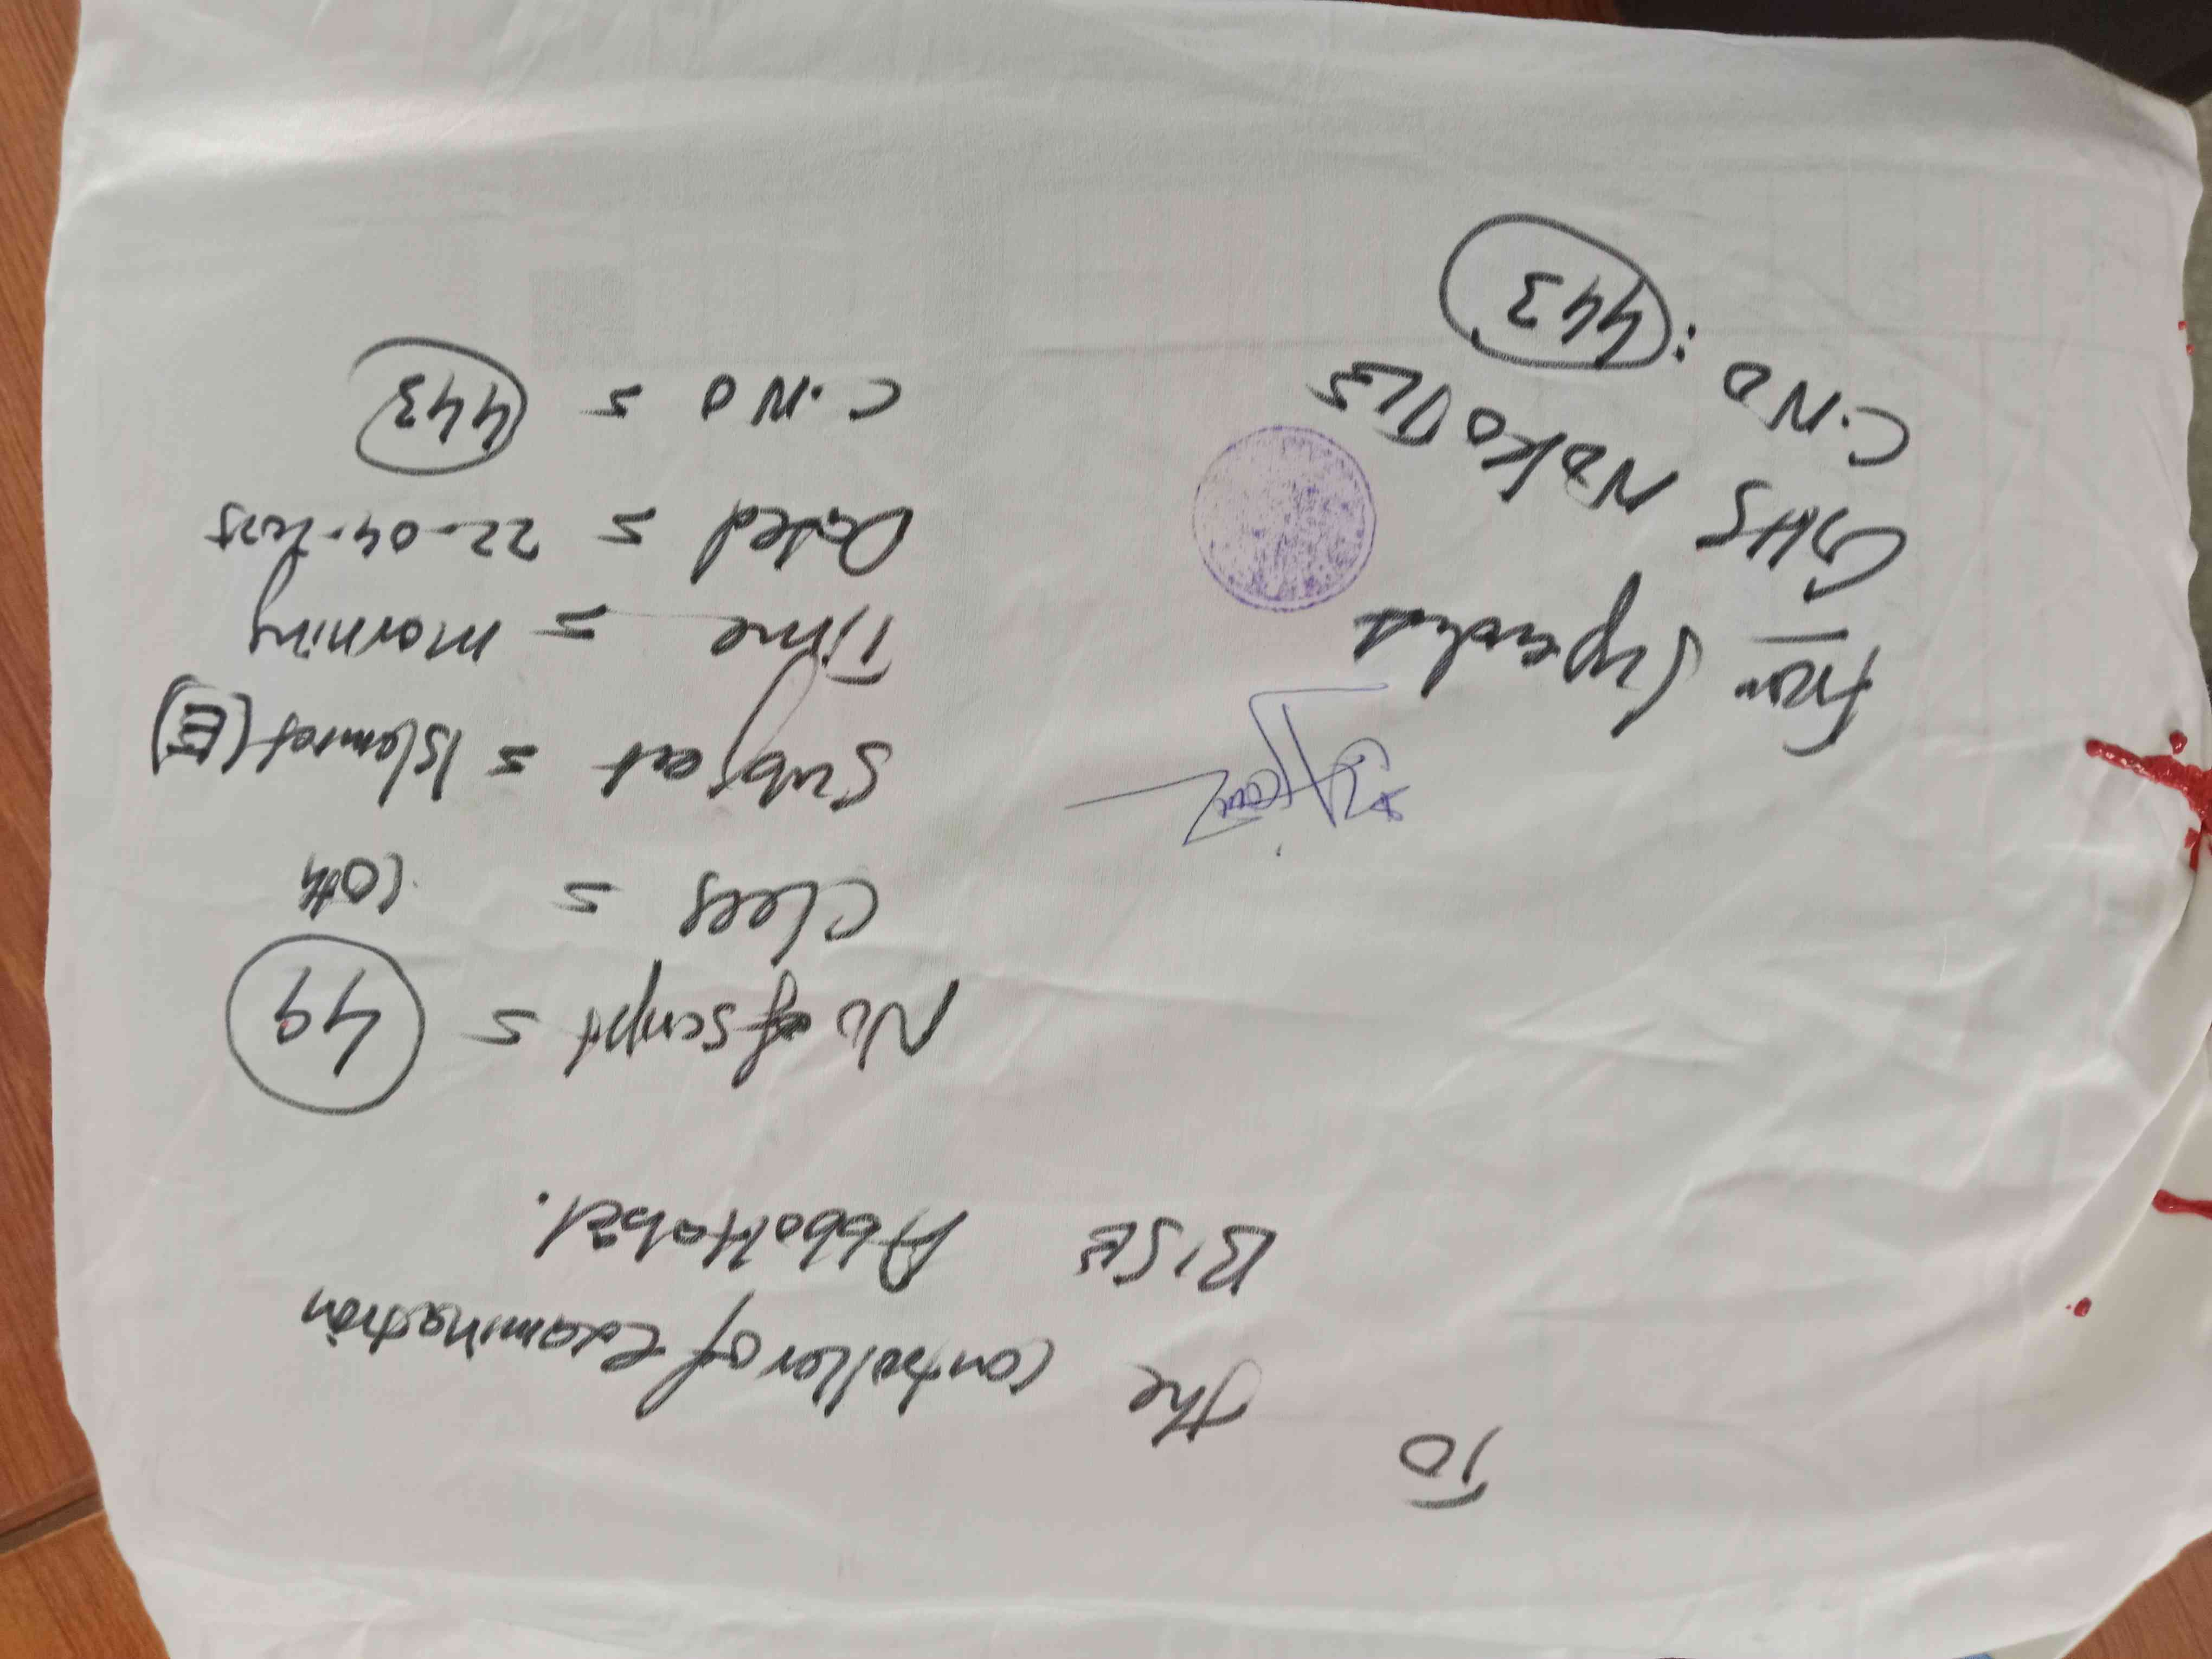 To
The Controller of Examination
BISE Abbottabad.
No of script = 49
Class = 10th
Subject = Islamiat (E)
Time = morning
Dated = 22-04-2025
C.NO = 443
From
GHS
C.NO: 443